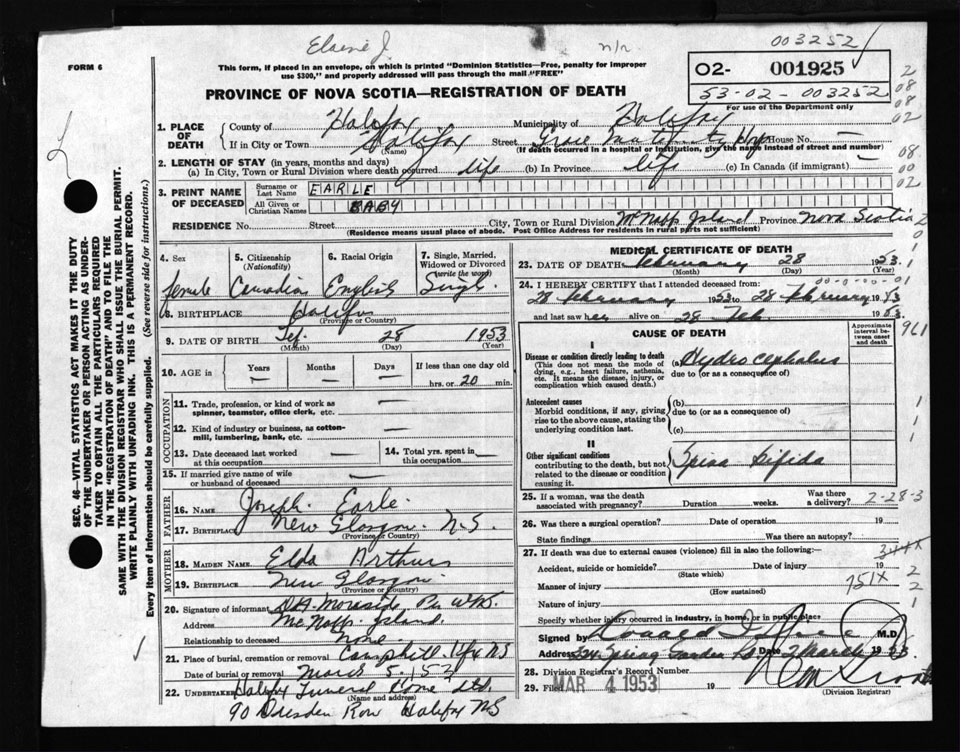 Elaine J. n/r 003252
FORM 6
This form, if placed in an envelope, on which is printed "Dominion Statistics—Free, penalty for improper
use $300," and properly addressed will pass through the mail "FREE"
02- 001925
53-02-003252
For use of the Department only
PROVINCE OF NOVA SCOTIA—REGISTRATION OF DEATH
1. PLACE OF DEATH
County of Halifax Municipality of Halifax
If in City or Town Halifax (Name) Street Grace Maternity Hosp House No. —
(If death occurred in a hospital or institution, give the name instead of street and number)
2. LENGTH OF STAY (in years, months and days)
(a) In City, Town or Rural Division where death occurred life (b) In Province life (c) In Canada (if immigrant) —
3. PRINT NAME OF DECEASED
Surname or Last Name EARLE
All Given or Christian Names BABY
RESIDENCE No. Street City, Town or Rural Division McNabb Island Province Nova Scotia
(Residence means usual place of abode. Post Office Address for residents in rural parts not sufficient)
4. Sex female
5. Citizenship (Nationality) Canadian
6. Racial Origin English
7. Single, Married, Widowed or Divorced (write the word) Single
8. BIRTHPLACE Halifax
(Province or Country)
9. DATE OF BIRTH Feb. 28 1953
(Month) (Day) (Year)
10. AGE in Years — Months — Days — If less than one day old
hrs. or 20 min.
OCCUPATION
11. Trade, profession, or kind of work as spinner, teamster, office clerk, etc. —
12. Kind of industry or business, as cotton-mill, lumbering, bank, etc. —
13. Date deceased last worked at this occupation —
14. Total yrs. spent in this occupation —
15. If married give name of wife or husband of deceased —
FATHER
16. NAME Joseph Earle
17. BIRTHPLACE New Glasgow N.S.
(Province or Country)
MOTHER
18. MAIDEN NAME Elda Arthurs
19. BIRTHPLACE New Glasgow
(Province or Country)
20. Signature of informant
Address McNabb Island
Relationship to deceased none
21. Place of burial, cremation or removal Camphill Hfx NS
Date of burial or removal March 5, 1953
22. UNDERTAKER Halifax Funeral Home Ltd.
(Name and address)
90 Dresden Row Halifax NS
MEDICAL CERTIFICATE OF DEATH
23. DATE OF DEATH February 28 1953.
(Month) (Day) (Year)
24. I HEREBY CERTIFY that I attended deceased from:
28 February 1953 to 28 February 1953
and last saw her alive on 28 Feb. 1953.
CAUSE OF DEATH
Approximate interval between onset and death
I
Disease or condition directly leading to death (a) Hydrocephalus
(This does not mean the mode of dying, e.g., heart failure, asthenia, etc. It means the disease, injury, or complication which caused death.)
due to (or as a consequence of)
Antecedent causes (b)
Morbid conditions, if any, giving rise to the above cause, stating the underlying condition last.
due to (or as a consequence of)
(c)
II
Other significant conditions contributing to the death, but not related to the disease or condition causing it.
Spina Bifida
961
25. If a woman, was the death associated with pregnancy? Duration weeks. Was there a delivery?
2-28-3
26. Was there a surgical operation? Date of operation 19
State findings Was there an autopsy?
27. If death was due to external causes (violence) fill in also the following:—
Accident, suicide or homicide? Date of injury 19
(State which)
Manner of injury
(How sustained)
751X
Nature of injury
Specify whether injury occurred in industry, in home, or in public place
Signed by M.D.
Address Spring Garden Rd Date 2 March 1953
28. Division Registrar's Record Number
29. Filed MAR 4 1953 19
(Division Registrar)
SEC. 46—VITAL STATISTICS ACT MAKES IT THE DUTY OF THE UNDERTAKER OR PERSON ACTING AS UNDERTAKER TO OBTAIN ALL THE PARTICULARS REQUIRED IN THE "REGISTRATION OF DEATH" AND TO FILE THE SAME WITH THE DIVISION REGISTRAR WHO SHALL ISSUE THE BURIAL PERMIT.
WRITE PLAINLY WITH UNFADING INK. THIS IS A PERMANENT RECORD.
Every item of information should be carefully supplied. (See reverse side for instructions.)